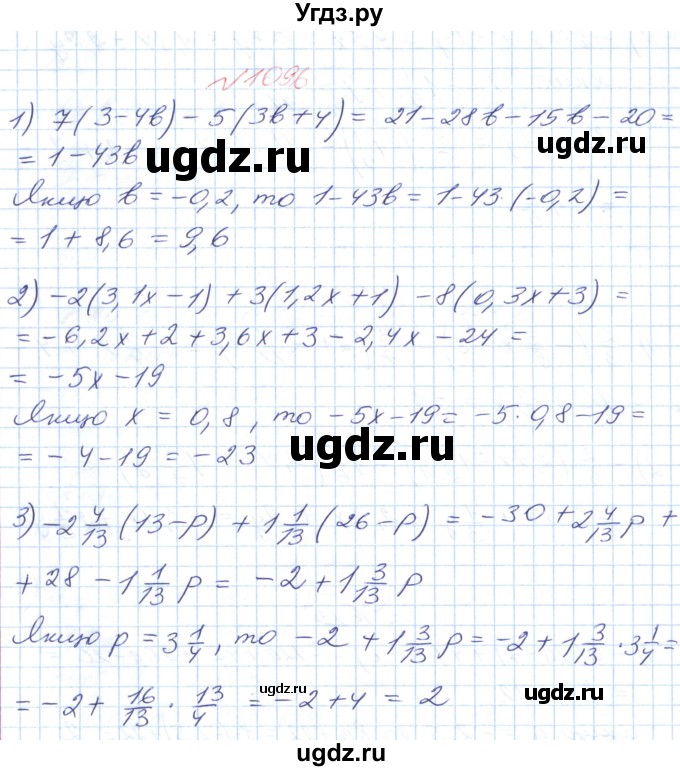 Угдз.ру
№1096
1) 7(3-4b) - 5(3b+4) = 21-28b-15b-20=
= 1-43b
ugdz.ru
Якщо b=-0,2, то 1-43b = 1-43·(-0,2) =
= 1 + 8,6 = 9,6
2) -2(3,1x-1) + 3(1,2x+1) -8(0,3x+3) =
= -6,2x+2+3,6x+3-2,4x-24 =
= -5x-19
Якщо x = 0,8, то -5x-19= -5·0,8-19=
ugdz.ru
= -4-19 = -23
3) -2 4/13 (13-p) + 1 1/13 (26-p) = -30 + 2 4/13 p +
+ 28 - 1 1/13 p = -2 + 1 3/13 p
Якщо p = 3 1/4, то -2 + 1 3/13 p = -2 + 1 3/13 · 3 1/4 =
ugdz.ru ugdz.ru
= -2 + 16/13 · 13/4 = -2+4 = 2
ugdz.ru